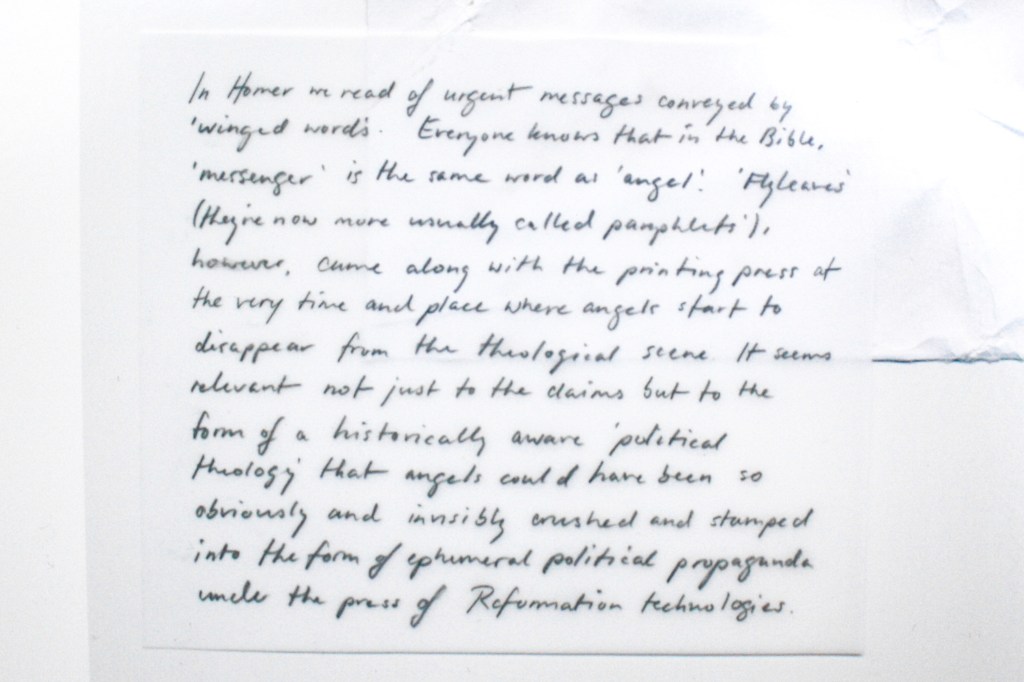 In Homer we read of urgent messages conveyed by
'winged words'. Everyone knows that in the Bible,
'messenger' is the same word as 'angel'. 'Flyleaves'
(they're now more usually called pamphlets'),
however, came along with the printing press at
the very time and place where angels start to
disappear from the theological scene. It seems
relevant not just to the claims but to the
form of a historically aware 'political
theology' that angels could have been so
obviously and invisibly crushed and stamped
into the form of ephemeral political propaganda
under the press of Reformation technologies.